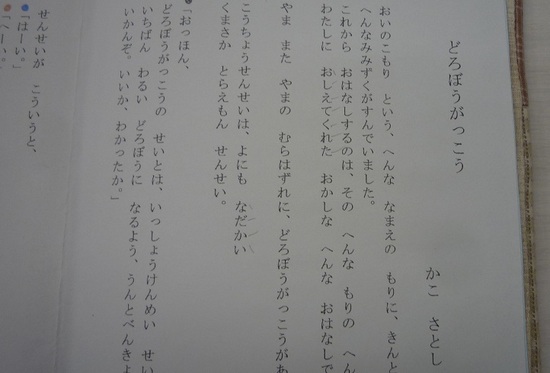 どろぼうがっこう
かこ さとし
おいのこもり という、へんな なまえの もりに、きんと
へんなみみずくがすんでいました。
これから おはなしするのは、その へんな もりの へん
わたしに おしえてくれた おかしな へんな おはなしで
やま また やまの むらはずれに、どろぼうがっこうがあ
こうちょうせんせいは、よにも なだかい
くまさか とらえもん せんせい。
「おっほん、
どろぼうがっこうの せいとは、いっしょうけんめい せい
いちばん わるい どろぼうに なるよう、うんとべんきょ
いかんぞ。いいか、わかったか。」
せんせいが こういうと、
「はーい。」
「へーい。」